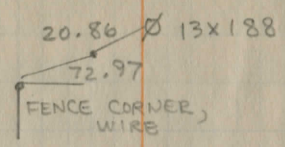 20.86 Ø 13 X 188
72.97
FENCE CORNER,
WIRE